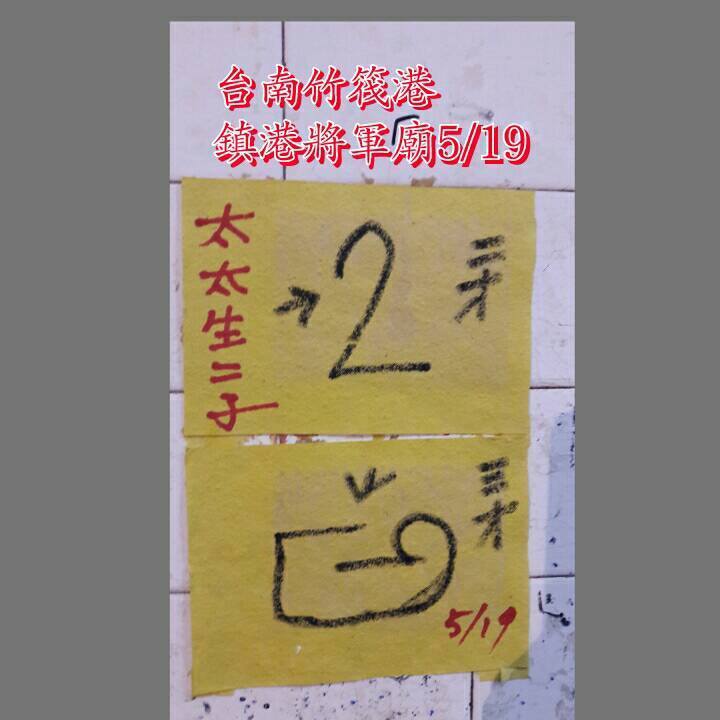 台南竹筏港
鎮港將軍廟5/19
太太生二子
2
三才
三才
5/19